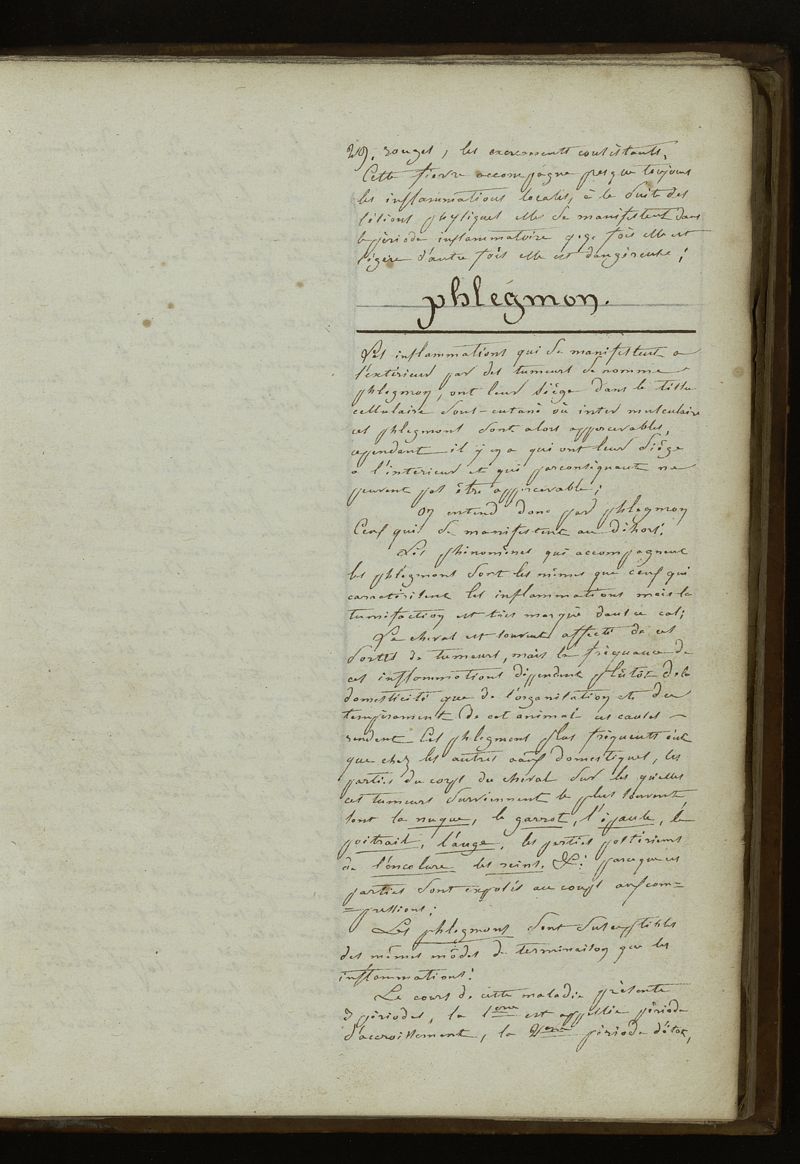 29. rouges, les excrements consistants,
Cette fievre accompagne presque toujours
les inflammations locales, à la suite des
lésions physiques elle se manifestent dans
la période inflammatoire q.q. fois elle est
légère d'autre fois elle est dangéreuse;
phlégmon.
Les inflammations qui se manifestent a
l'extérieur par des tumeurs se nomme
phlegmon, ont leur siége dans le tissu
cellulaire sous-cutané où inter musculaire
ces phlegmons sont alors appercevables,
cependant il y en a qui ont leur siége
a l'intérieur et qui parconsiquent ne
peuvent pas être appercevable;
On entend donc par phlegmon
Ceux qui se manifestent au déhors.
Les phénomènes qui accompagnent
les phlegmons sont les mêmes que ceux qui
caractérisent les inflammations mais la
tumifaction est très marqué dans ce cas;
Le cheval est souvent affecté de ces
sortes de tumeurs, mais la fréquence de
ces inflammations dippendent plûtôt de la
domesticité que de l'organisation et du
tempérament de cet animal ces causes
rendent ces phlegmons plus fréquents
que chez les autres domestiques, les
parties du corps du cheval sur les quelles
ces tumeurs surviennent le plus souvent,
sont la nuque, le garrot, l'épaule, le
poitrail, l'auge, les parties postérieures
de l'encolure les reins. &: parceque ces
parties sont exposés au coups auxcom=
=pressions;
Les phlegmons sont suseptibles
des mêmes môdes de terminaison que les
inflammations.
Le cours de cette maladie présente
3 périodes, la 1ere est appellée période
d'accroissement, la 2eme période d'état,